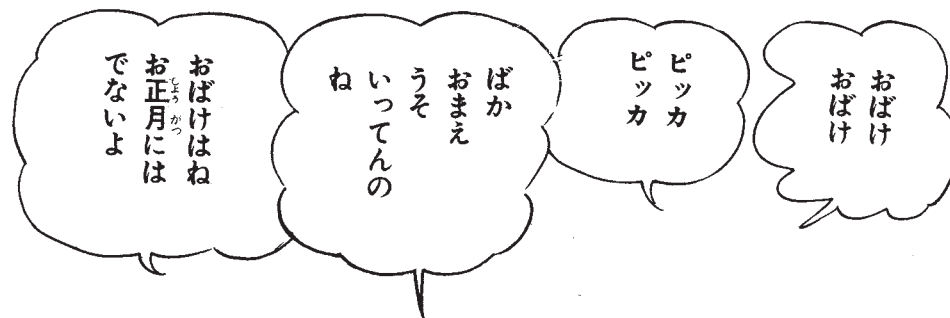 おばけ
おばけ
ピッカ
ピッカ
ばか
おまえ
うそ
いってんの
ね
おばけはね
お正月には
でないよ